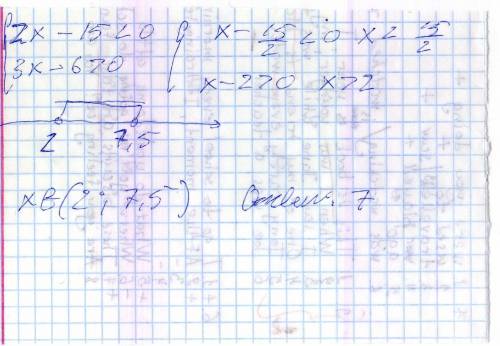 { 2x - 15 < 0 { x - 15/2 < 0 x < 15/2
{ 3x - 6 > 0 { x - 2 > 0 x > 2
2 7,5
x ∈ (2; 7,5) Ответ. 7